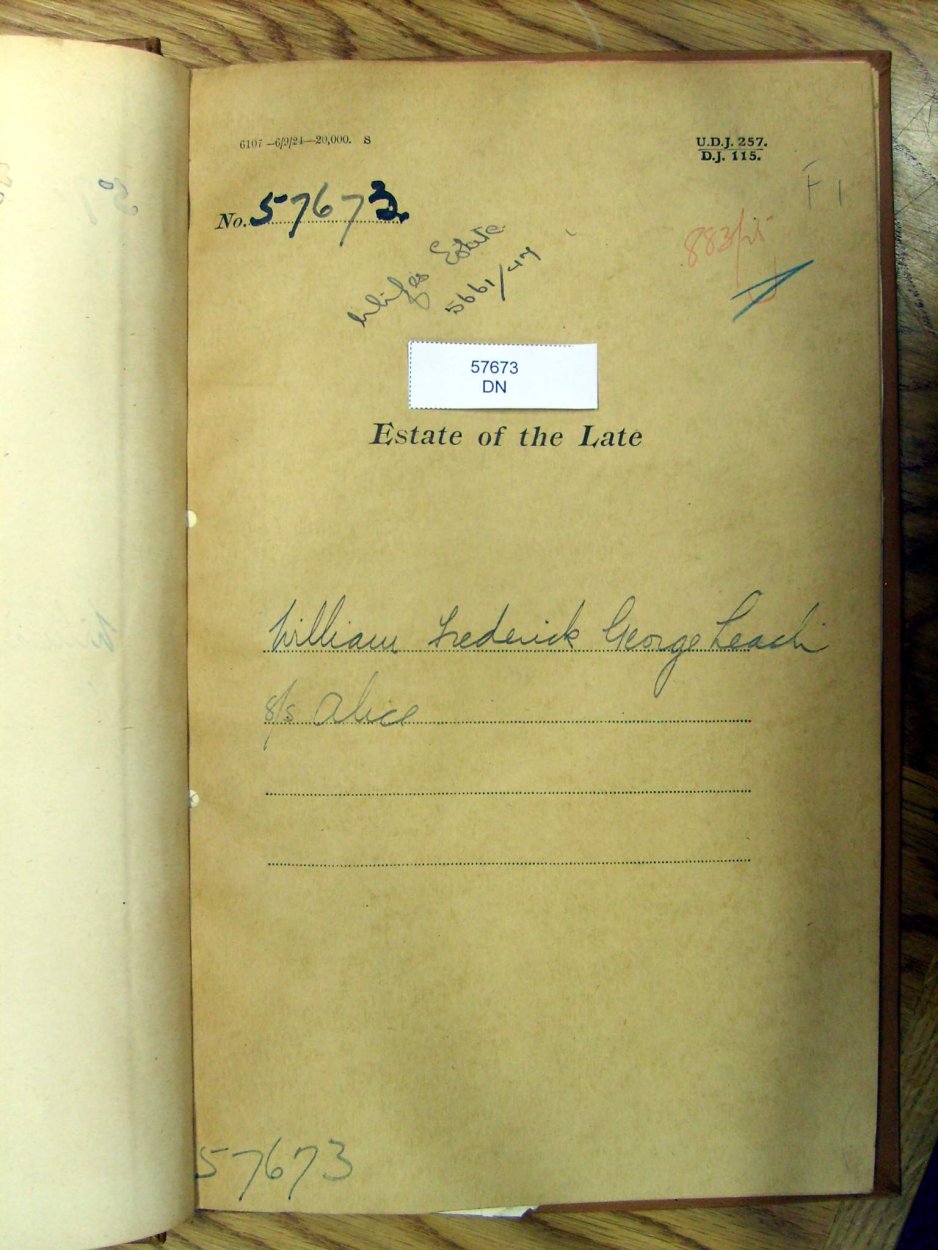 6107 —6/9/24—20,000. S
U.D.J. 257.
D.J. 115.
F 1
No. 57673
Wifes Estate
5661/47
57673
DN
Estate of the Late
William Frederick George Leach
s/s Alice
57673